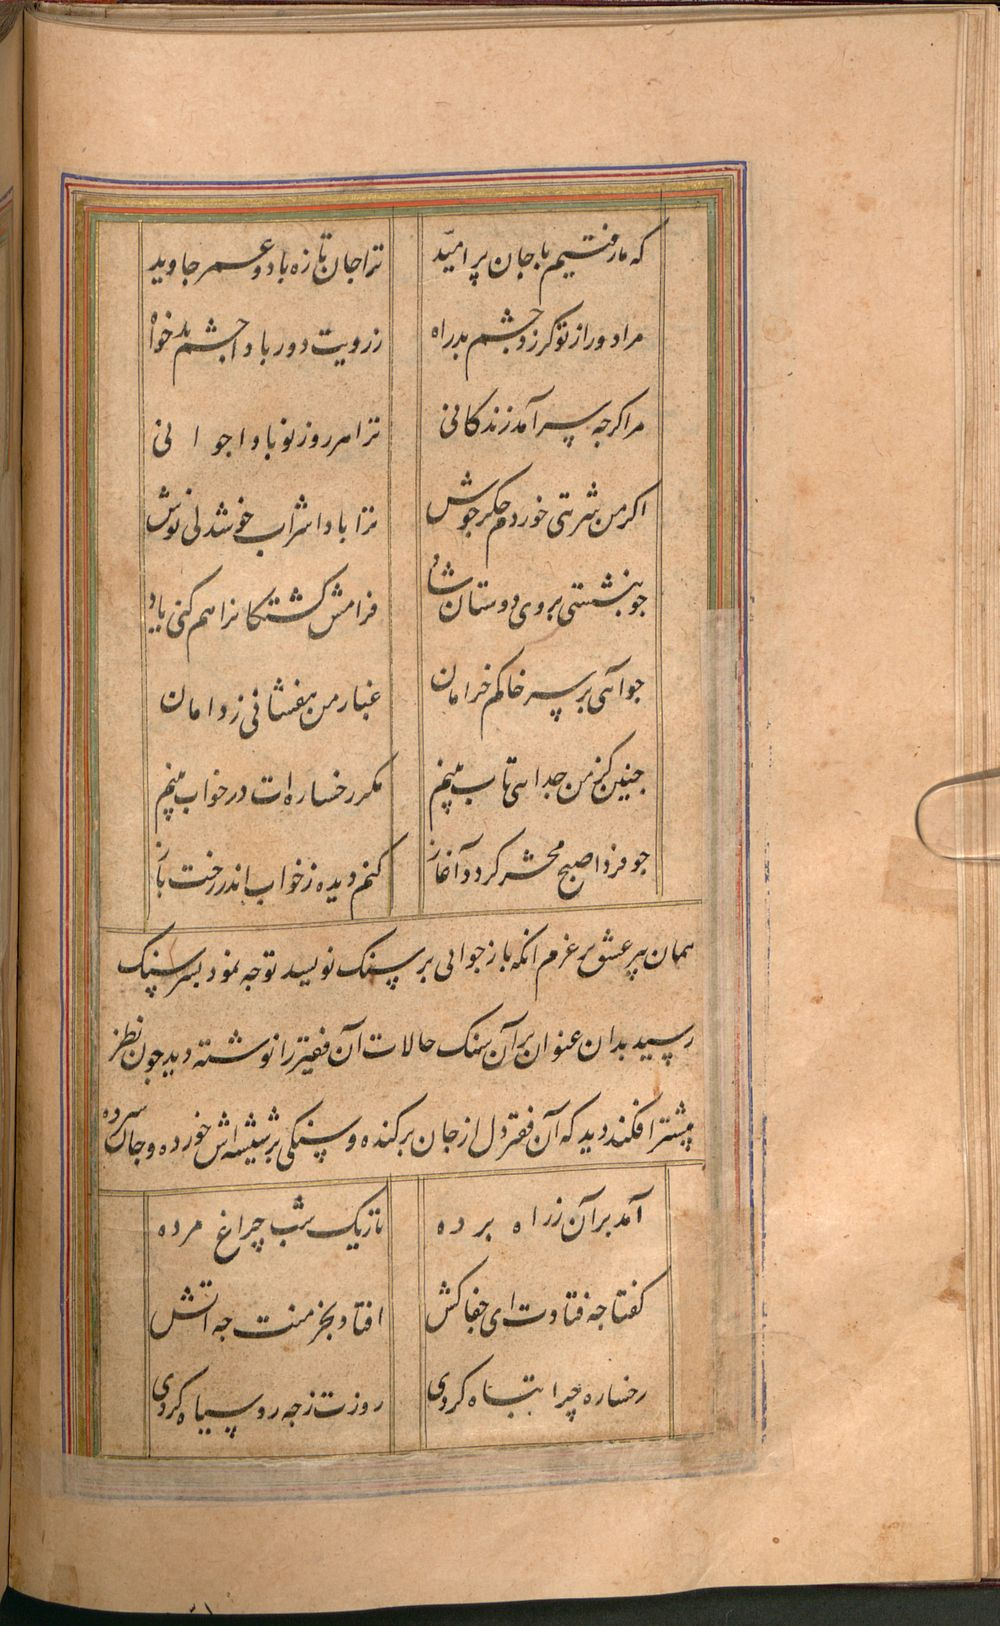 که ما رفتیم با جان پر امیّد ترا جان تازه باد و عمر جاوید
مرا دور از تو کرز دچشم بد راه ز رویت دور بادا چشم بدخواه
مرا کرجه بسر آمد زندکانی ترا امروز نو بادا جوانی
اکر من شربتی خوردم جکر جوش ترا بادا شراب خوشدلی نوش
جو بنشستی بروی دوستان شاد فرامش کشتکانرا هم کنی یاد
جو آئی بر سر خاکم خرامان غبار من بیفشانی ز دامان
جنین کز من جدا می تاب بینم مکر رخساره ات در خواب بینم
جو فردا صبح محشر کردد آغاز کنم دیده ز خواب اندر رخت باز
همان پیر عشق بر عزم انکه باز جوابی بر سنک نویسد توجه نمود بسر سنک
رسید بدان عنوان بر آن سنک حالات آن فقیر را نوشته دید جون نظر
پیشتر افکند دید که آن فقیر دل از جان برکنده و سنکی بر شیشه اش خورده و جان سپرده
آمد بر آن ز راه برده تاریک شب چراغ مرده
کفتا جه فتادت ای جفاکش افتاد بخرمنت جه اتش
رخساره چرا تباه کردی روزت ز جه رو سیاه کردی